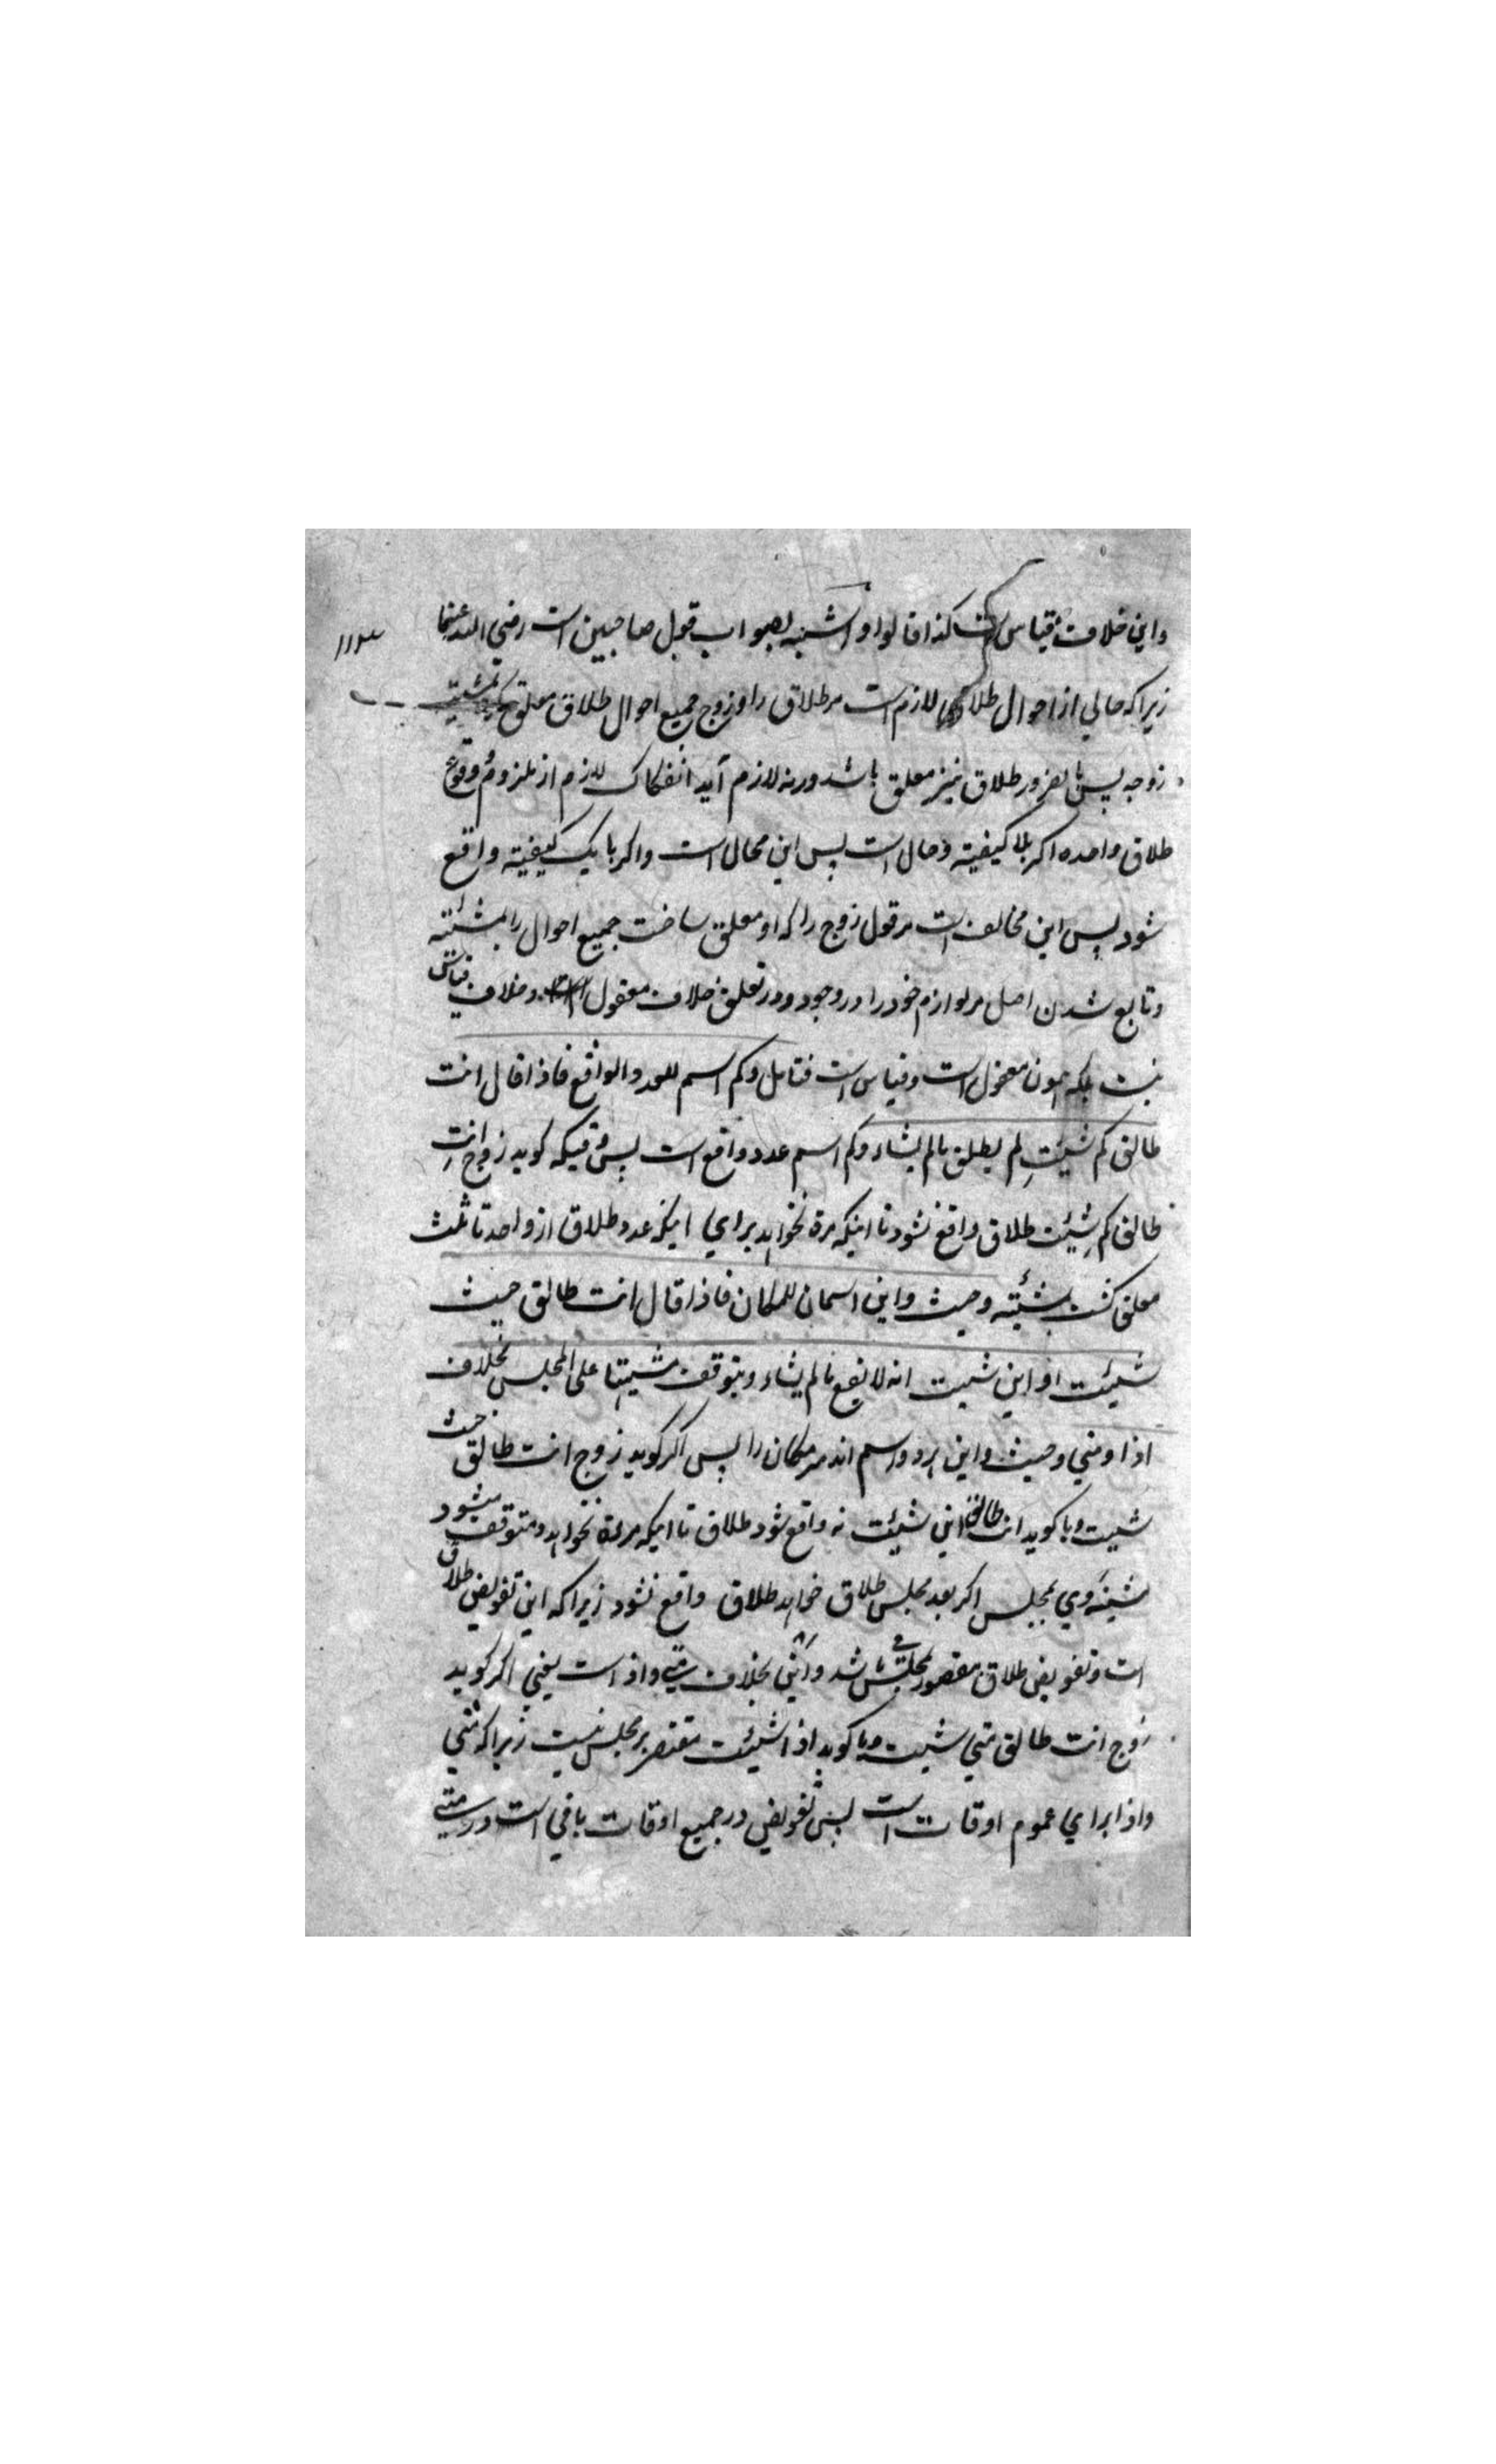 واین خلاف قیاس است کذا قالوا واشبه بصواب قول صاحبین است رضی الله عنهما
زیرا که حالی از احوال طلاق لازم است مر طلاق را و زوج جمیع احوال طلاق معلق کرد بمشیته
زوجه پس بالضرور طلاق نیز معلق باشد ورنه لازم آید انفکاک لازم از ملزوم و وقوع
طلاق واحده اگر بلا کیفیته و حال است پس این محال است واگر با یک کیفیته واقع
شود پس این مخالف است مر قول زوج را که او معلق ساخت جمیع احوال را بمشئیته
وتابع شدن اصل مر لوازم خود را در وجود ودر تعلق خلاف معقول وخلاف قیاس
نیست بلکه همون معقول است وقیاس است فتامل وکم اسم للعدد الواقع فاذا قال انت
طالق کم شیتِ لم یطلق مالم یشاء وکم اسم عدد واقع است پس وقتیکه کوید زوج انتِ
طالق کم شِئیت طلاق واقع نشود تا اینکه مرة نخواهد برای اینکه عدد طلاق از واحد تا ثلث
معلق کشت بمشئیته وحیث واین اسمان للمکان فاذا قال انت طالق حیث
شیئت او این شیت انه لا یقع مالم یشاء ویتوقف مشیتها علی المجلس بخلاف
اذا ومتی وحیث واین هر دو اسم اند مر مکان را پس اکر کوید زوج انت طالق حیث
شیت ویا کوید انت طالق این شیئت نه واقع شود طلاق تا اینکه مرة نخواهد ومتوقف میشود
مشیئه وی بمجلس اکر بعد مجلس طلاق خواهد طلاق واقع نشود زیرا که این تفویض طلاق
است وتفویض طلاق مقصور بمجلس باشد واین بخلاف متی واذا است یعنی اکر کوید
زوج انت طالق متی شیت ویا کوید اذا شیئت مقتصر بر مجلس نیست زیرا که متی
واذا برای عموم اوقات است پس تفویض در جمیع اوقات باقی است ودر متی